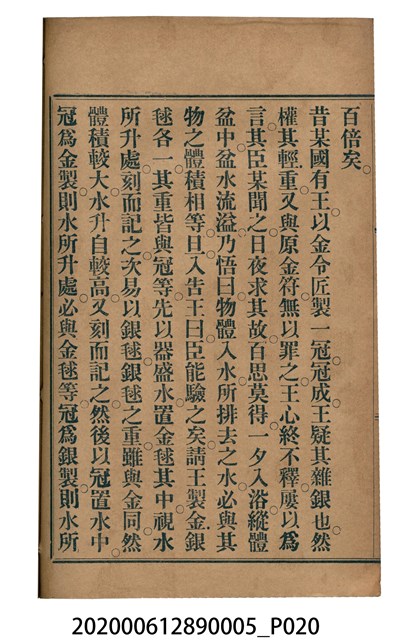 百倍矣。
昔某國有王。以金令匠製一冠。冠成。王疑其雜銀也。然
權其輕重。又與原金符。無以罪之。王心終不釋。屢以爲
言。其臣某聞之。日夜求其故。百思莫得。一夕入浴。縱體
盆中。盆水流溢。乃悟曰。物體入水。所排去之水。必與其
物之體積相等。旦入告王曰。臣能驗之矣。請王製金銀
毬各一。其重皆與冠等。先以器盛水。置金毬其中。視水
所升處。刻而記之。次易以銀毬。銀毬之重。雖與金同。然
體積較大。水升自較高。又刻而記之。然後以冠置水中。
冠爲金製。則水所升處。必與金毬等。冠爲銀製。則水所
202000612890005_P020